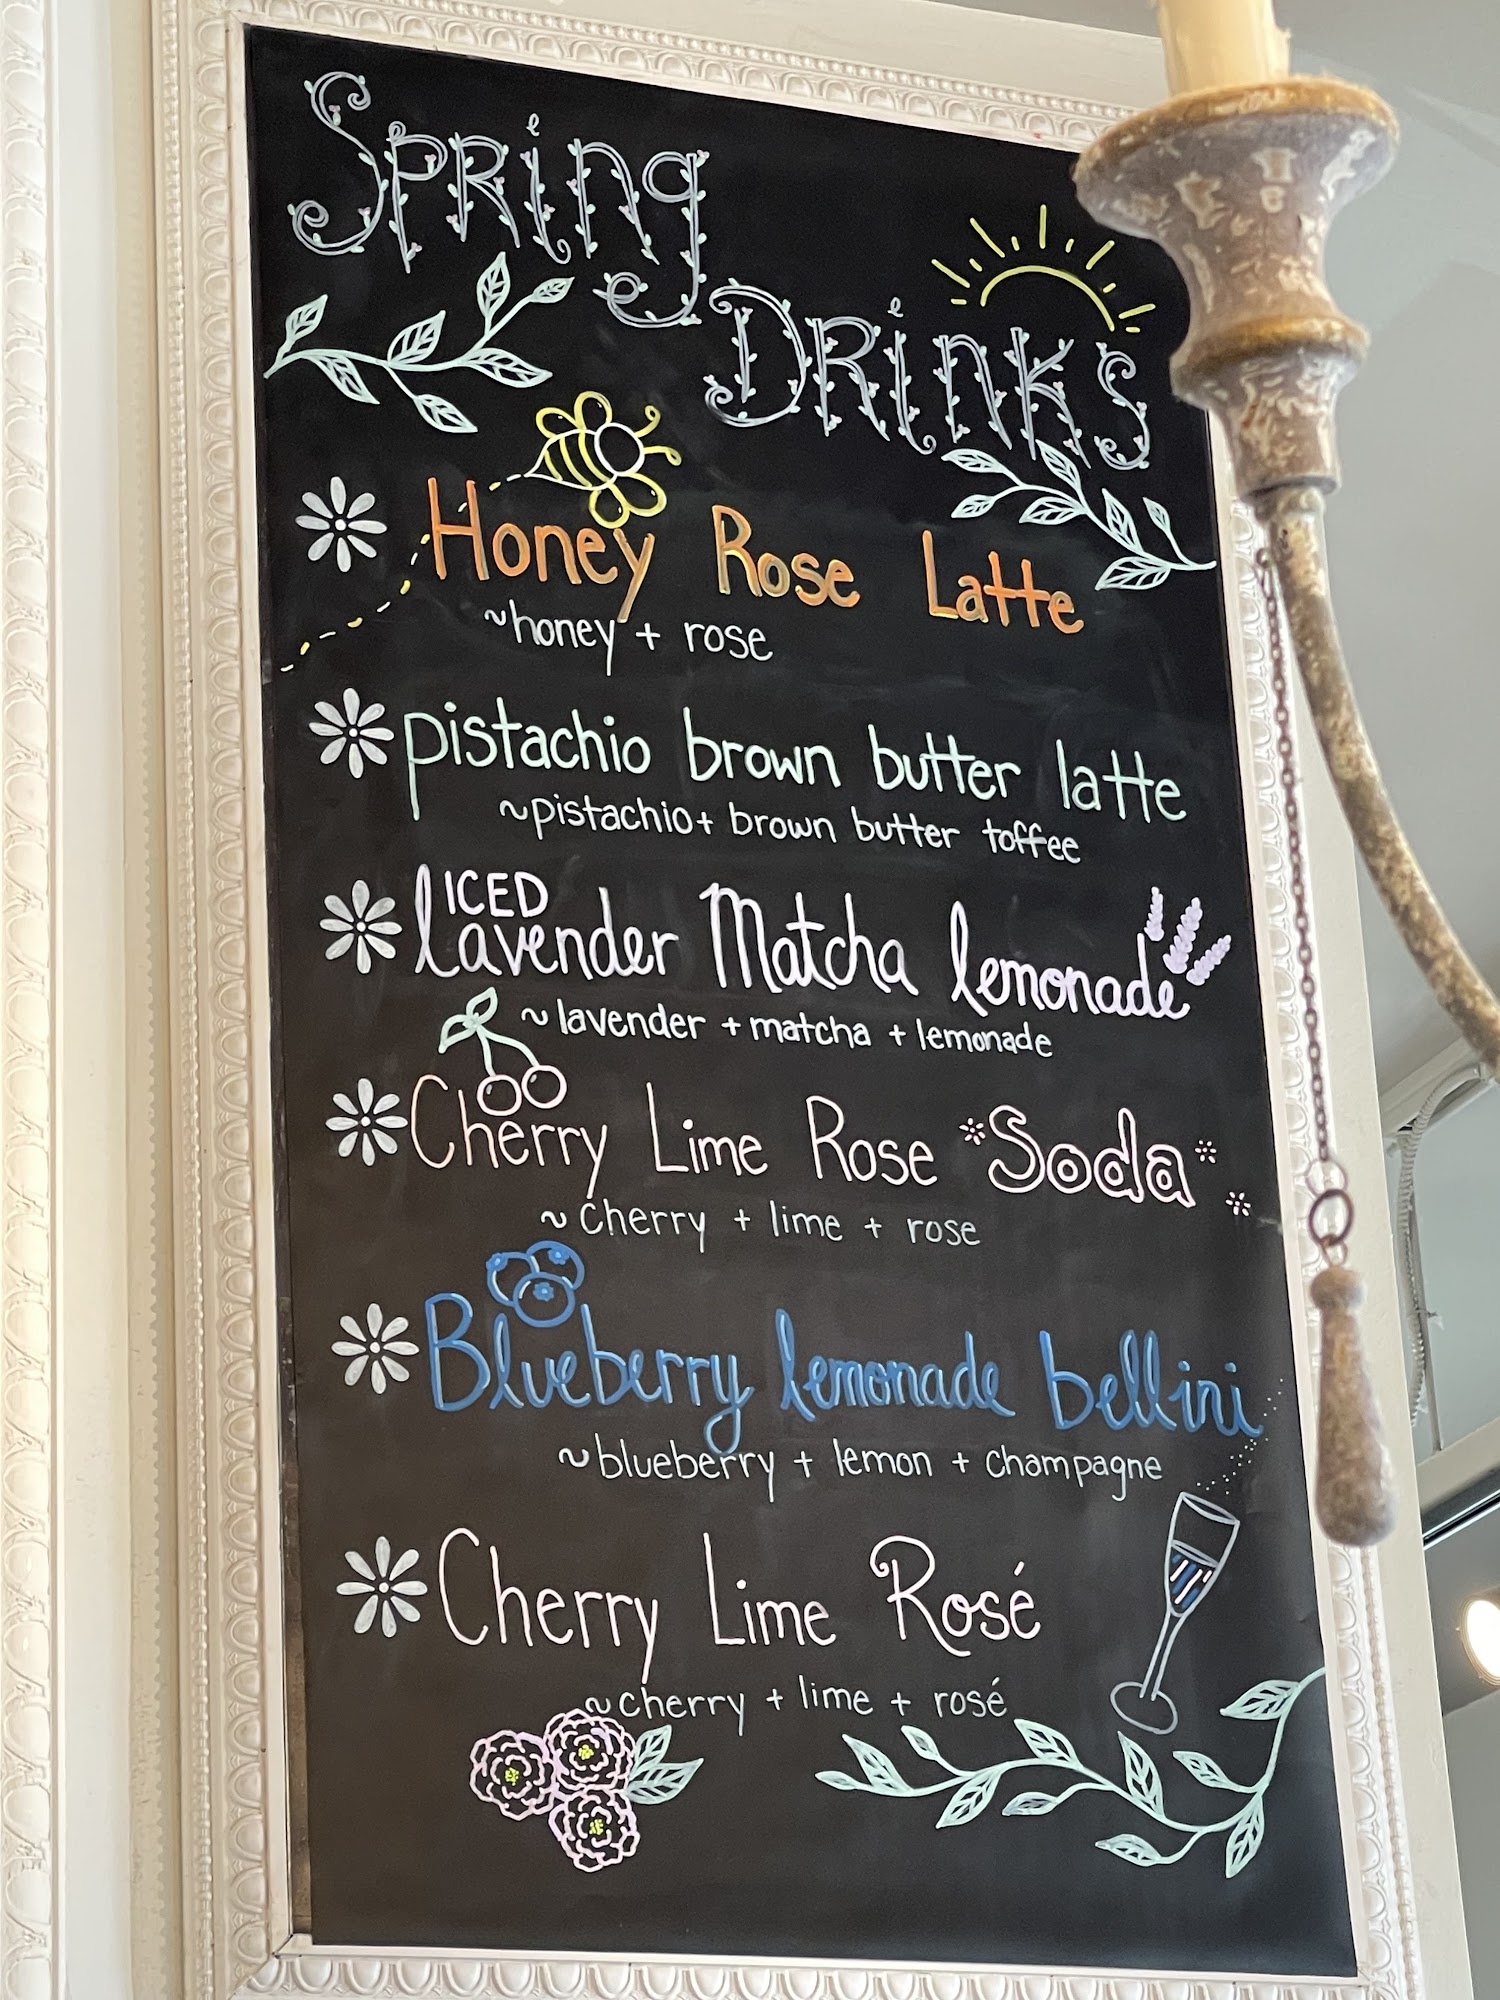 Spring
Drinks
Honey Rose Latte
~honey + rose
pistachio brown butter latte
~pistachio + brown butter toffee
ICED
lavender Matcha lemonade
~ lavender + matcha + lemonade
Cherry Lime Rose *Soda*
~ cherry + lime + rose
Blueberry lemonade bellini
~ blueberry + lemon + champagne
Cherry Lime Rosé
~cherry + lime + rosé